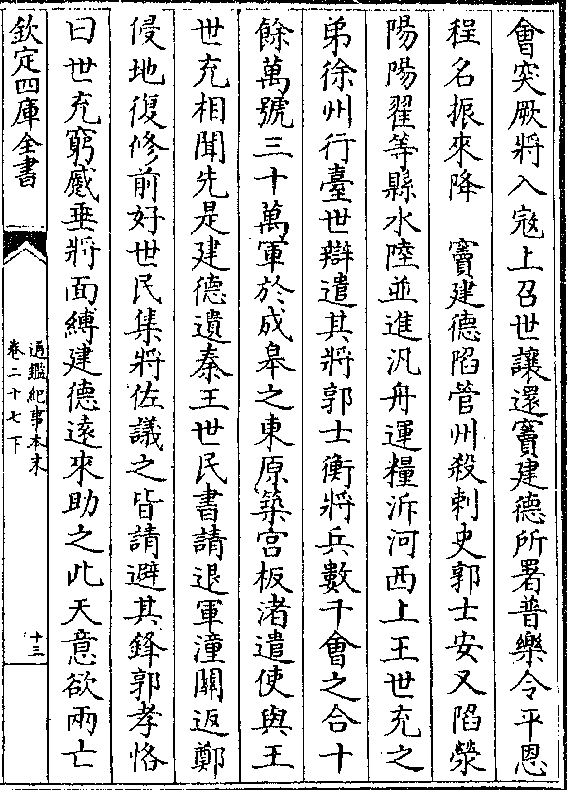 會突厥將入寇上召世讓還竇建德所署普樂令平恩
程名振來降　竇建德陷管州殺刺史郭士安又陷滎
陽陽翟等縣水陸並進汎舟運糧泝河西上王世充之
弟徐州行臺世辯遣其將郭士衡將兵數千會之合十
餘萬號三十萬軍於成皋之東原築宮板渚遣使與王
世充相聞先是建德遺秦王世民書請退軍潼關返鄭
侵地復修前好世民集將佐議之皆請避其鋒郭孝恪
曰世充窮蹙垂將面縛建德遠來助之此天意欲兩亡
欽定四庫全書
通鑑紀事本末
卷二十七下
十三